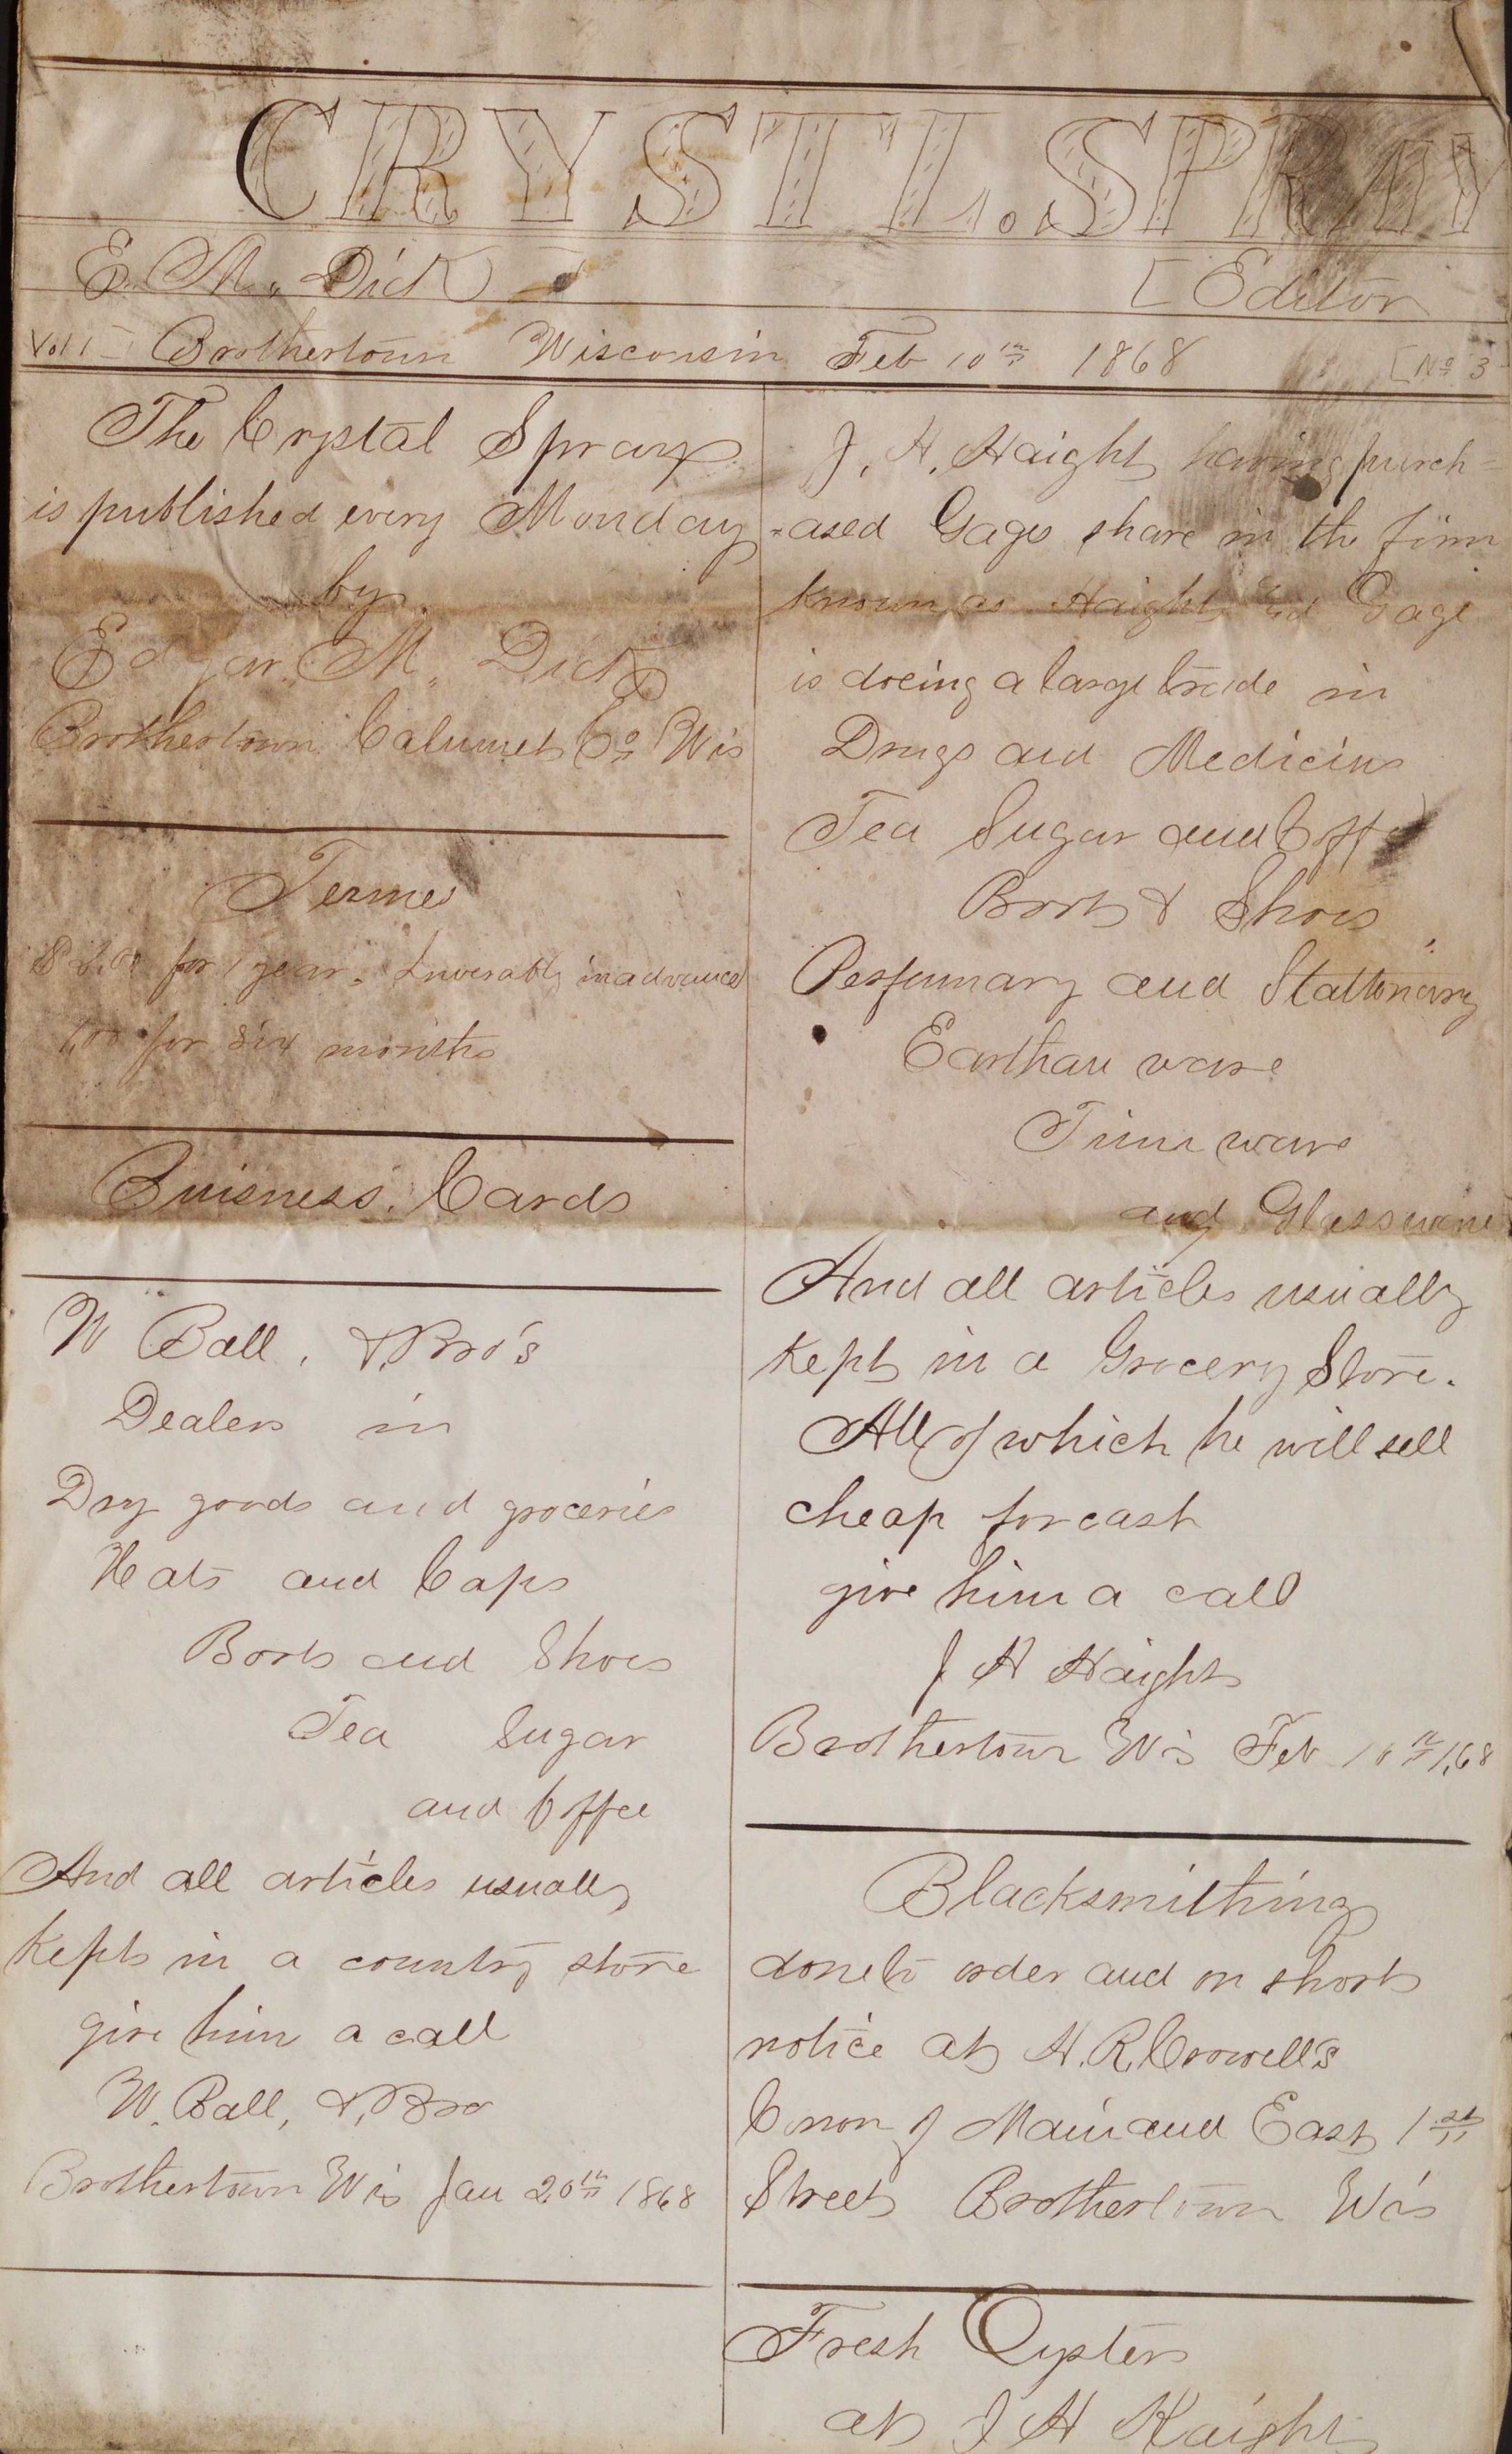 CRYSTL. SPRAY
E. M. Dick [Editor
Vol 1 Brothertown Wisconsin Feb 10th 1868 [No 3
The Crystal Spray
is published every Monday
by
Edgar. M. Dick
Brothertown Calumet Co Wis
Termes
$2.00 for 1 year. in advance
1,00 for six months
Buisness. Cards
W Ball, & Bro's
Dealers in
Dry goods and groceries
Hats and Caps
Boots and Shoes
Tea Sugar
and Coffee
And all articles usually
kept in a country store
give him a call
W. Ball, & Bro
Brothertown Wis Jan 20th 1868
J. H. Haight having purch=
=ased Gages share in the firm
known as Haight and Gage
is doeing a large trade in
Drugs and Medicins
Tea Sugar and Coffee
Boots & Shoes
Perfumary and Stationary
Earthan ware
Tinn ware
and Glassware
And all articles usually
kept in a Grocery Store.
All of which he will sell
cheap for cash
give him a call
J H Haight
Brothertown Wis Feb 10th 1,68
Blacksmithing
done to order and on short
notice at H. R. Crowell's
Cornor of Main and East 1st
Street Brothertown Wis
Fresh Oysters
at J H Haight